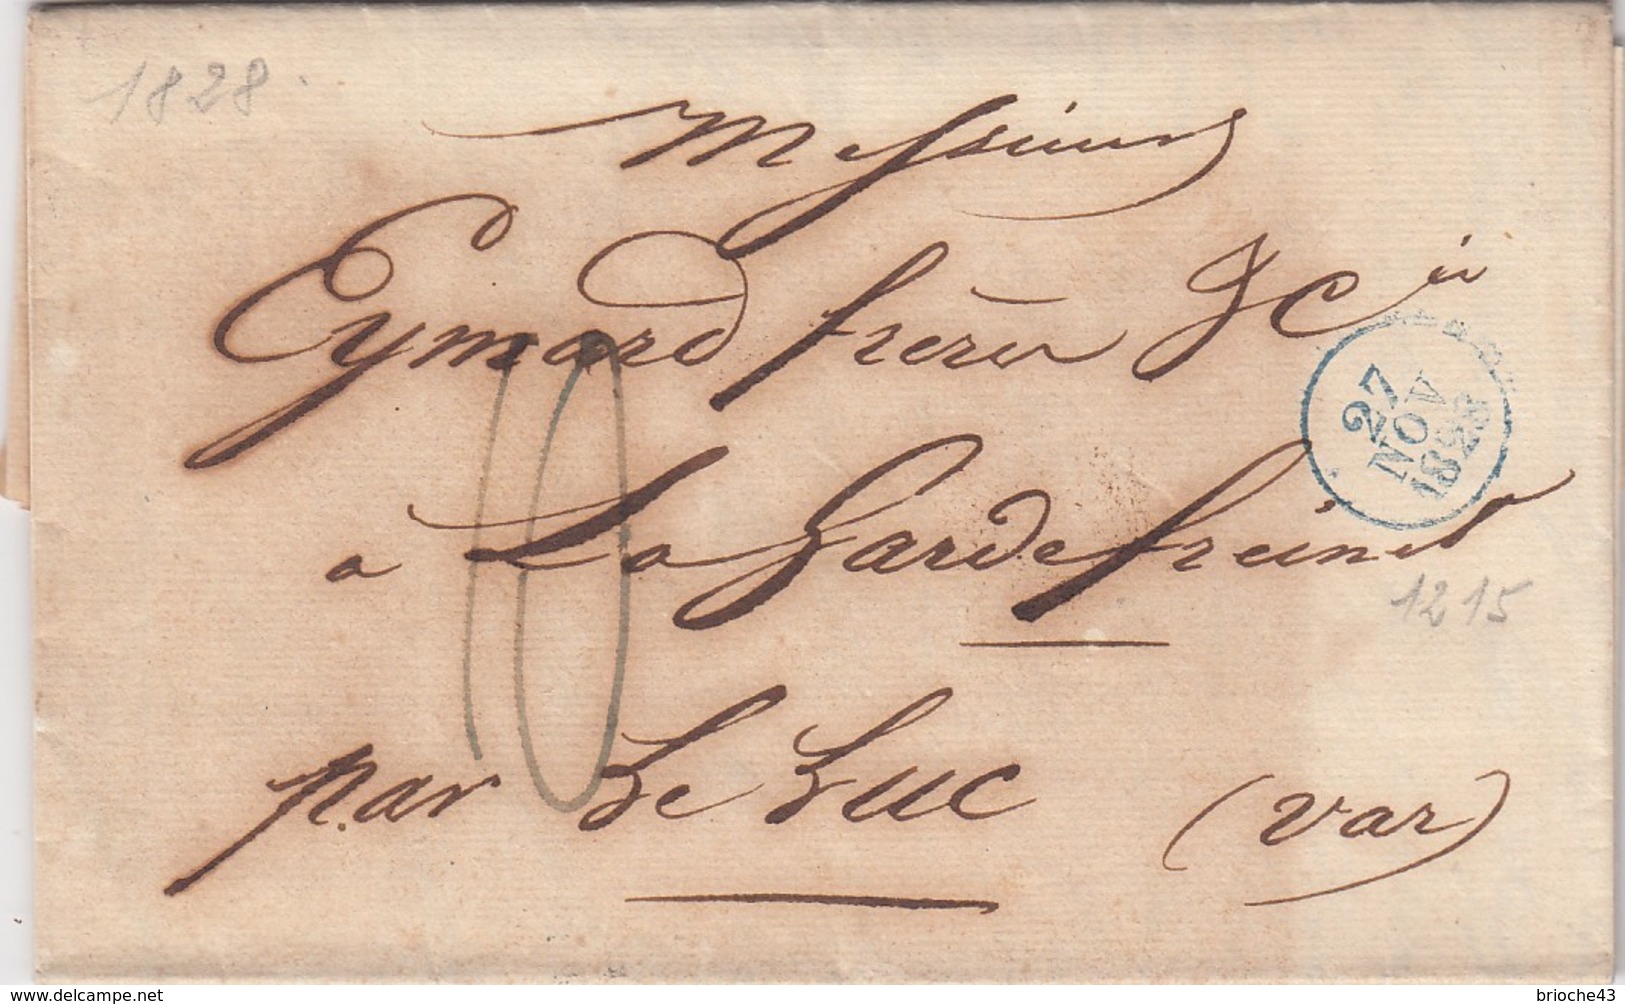 1828.
Messieurs
Eymard frères & Cie
27
NOV
1828
10
a La Gardefreinet
1215
par Le Luc (Var)
www.delcampe.net
brioche43